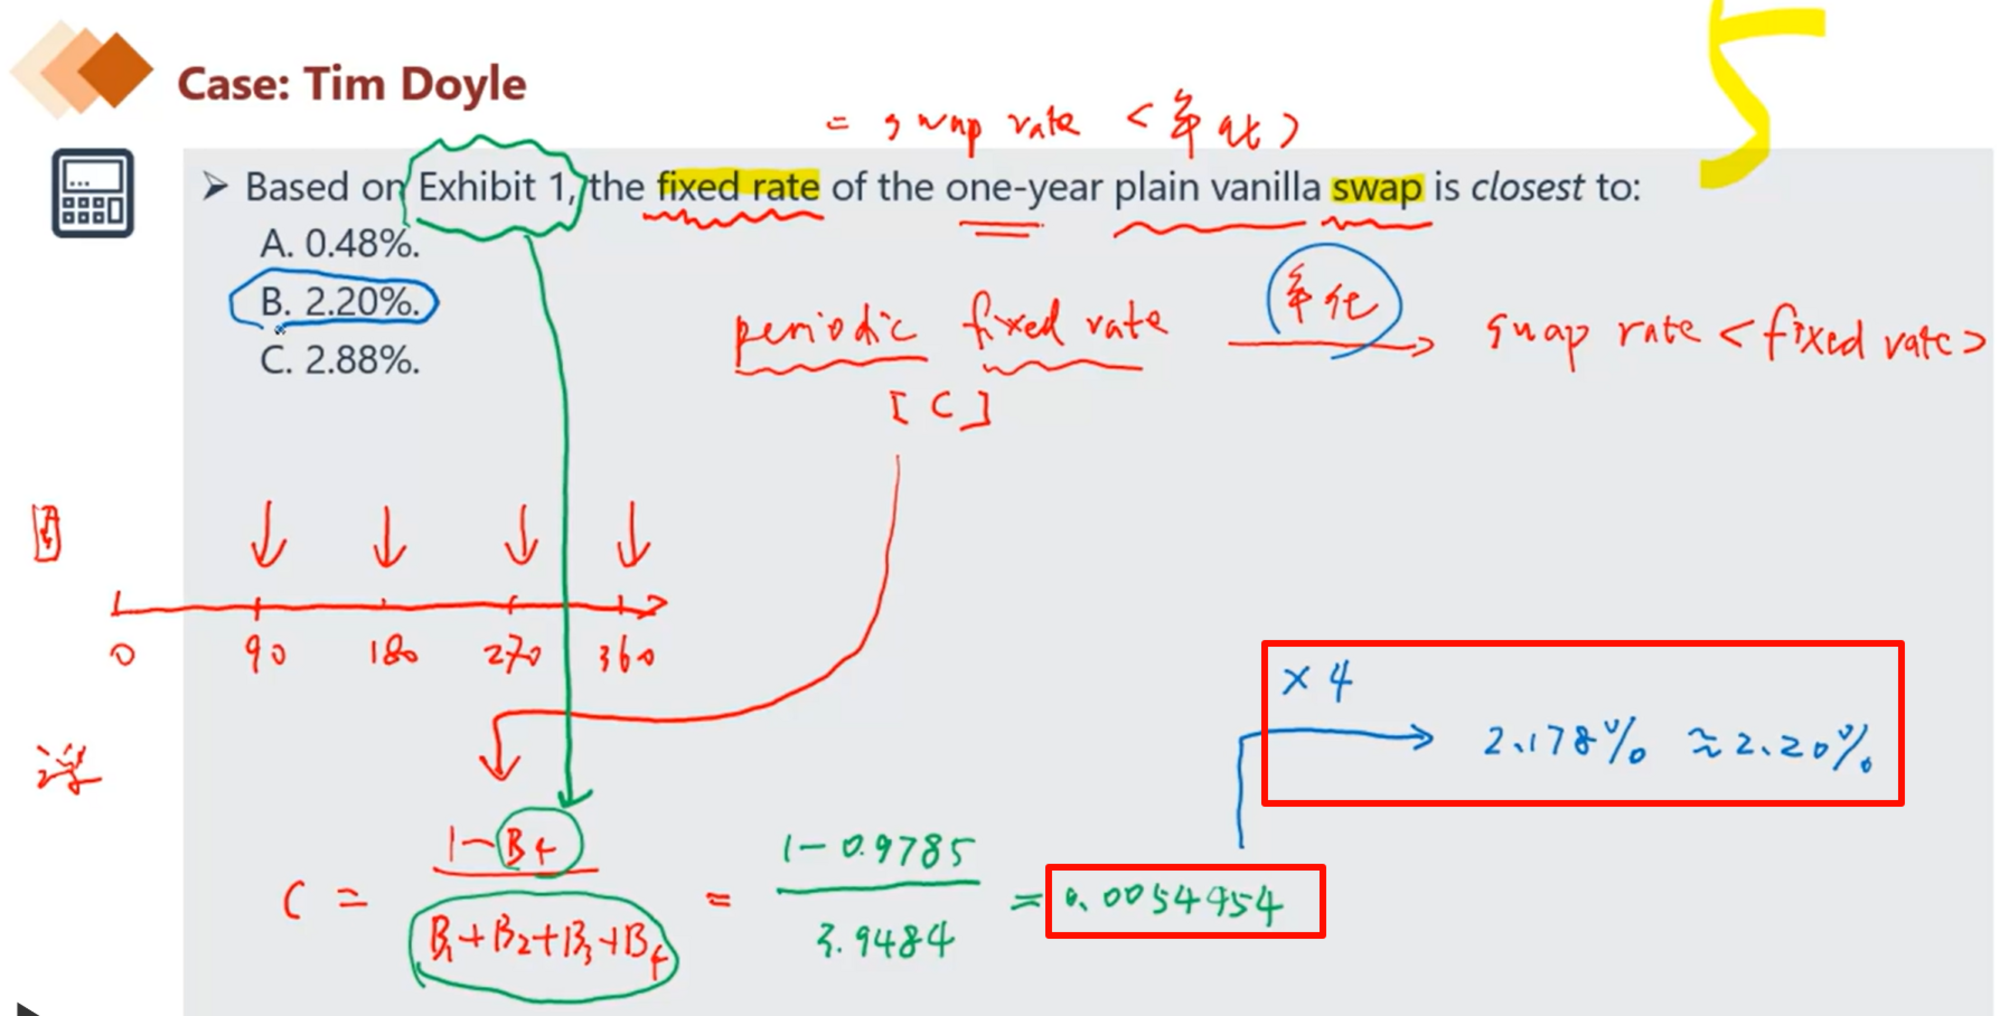 5
Case: Tim Doyle
= swap rate <年化>
➢ Based on Exhibit 1, the fixed rate of the one-year plain vanilla swap is closest to:
A. 0.48%.
B. 2.20%.
C. 2.88%.
periodic fixed rate 年化 swap rate <fixed rate>
[C]
0 90 180 270 360
× 4
2.178% ≈ 2.20%
C = 1-B4 / B1+B2+B3+B4 = 1-0.9785 / 3.9484 = 0.0054454